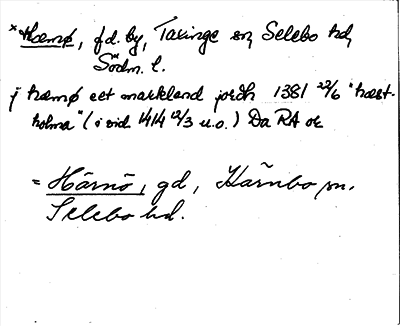 *Hæmø, f.d. by, Taxinge sn, Selebo hd,
Södm. l.
j hæmø eet markland jordh 1381 22/6 "hæst-
holma" (i vid. 1414 12/3 u.o.) Da RA or
= Härnö, gd, Kärnbo sn.
Selebo hd.